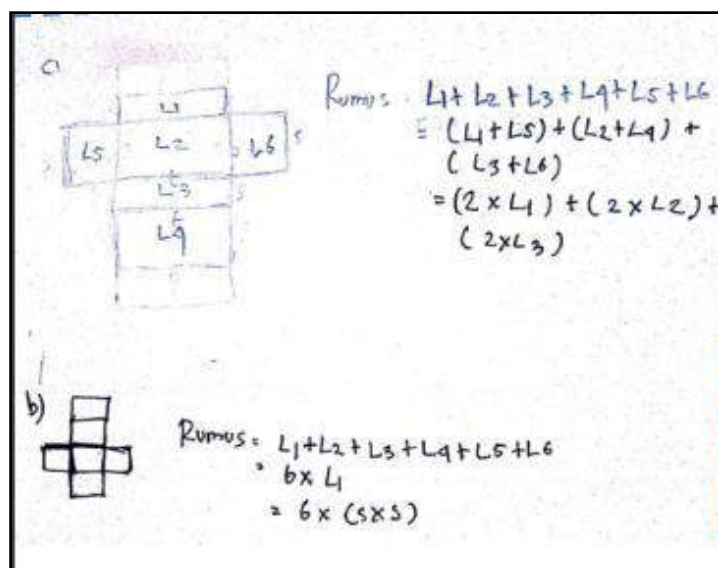 a
L1
L5 L2 s L6 s
L3 s
L4
Rumus : L1+L2+L3+L4+L5+L6
= (L1+L5)+(L2+L4)+
(L3+L6)
=(2×L1)+(2×L2)+
(2×L3)
b)
Rumus = L1+L2+L3+L4+L5+L6
= 6×L1
= 6×(s×s)